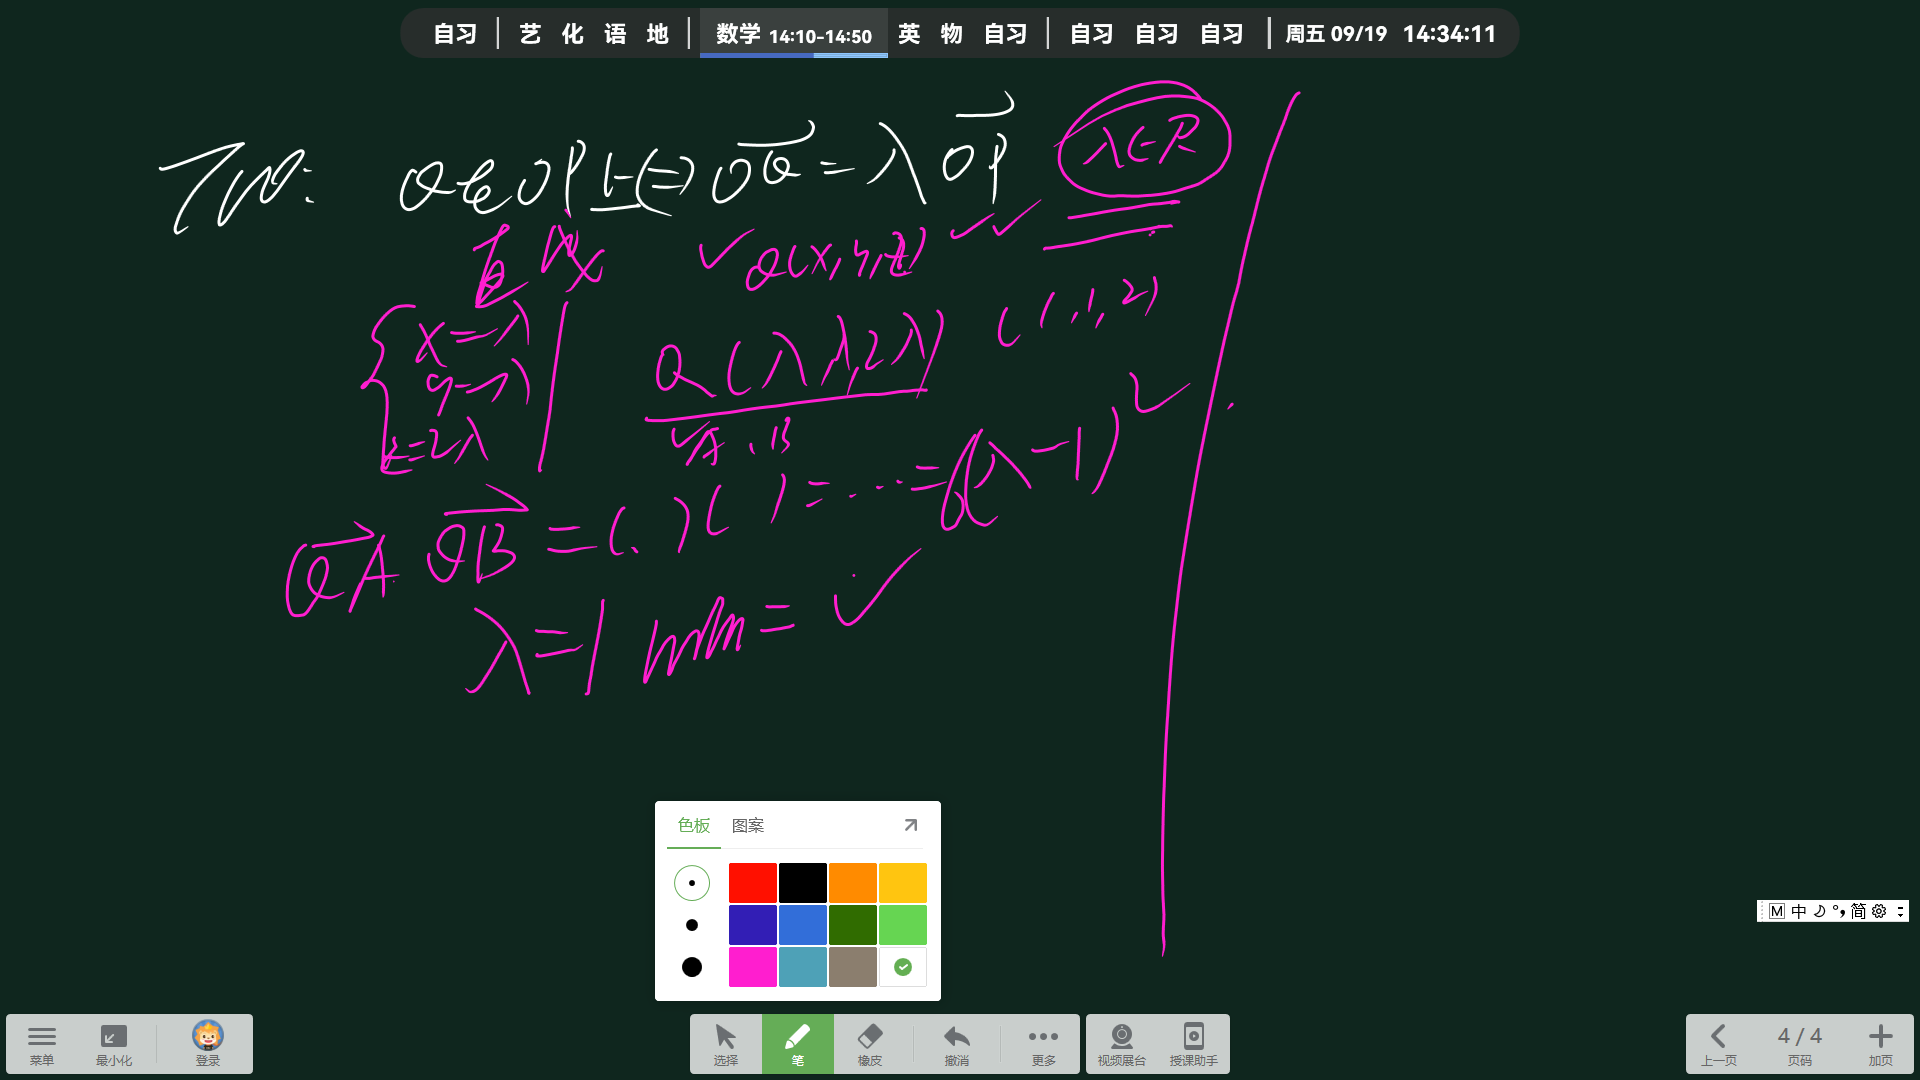 自习 | 艺 化 语 地 | 数学 14:10-14:50 英 物 自习 | 自习 自习 自习 | 周五 09/19 14:34:11
Q在OP上⇔OQ=λOP λ∈R
直线 Q(x,y,z)
x=λ
y=λ
z=2λ
Q(λ,λ,2λ) (1,1,2)
A,B
QA QB=( )( )=…=6(λ-1)
λ=1 min=
色板 图案
M 中 简
菜单 最小化 登录 选择 笔 橡皮 撤消 更多 视频展台 授课助手 上一页 4/4 页码 加页